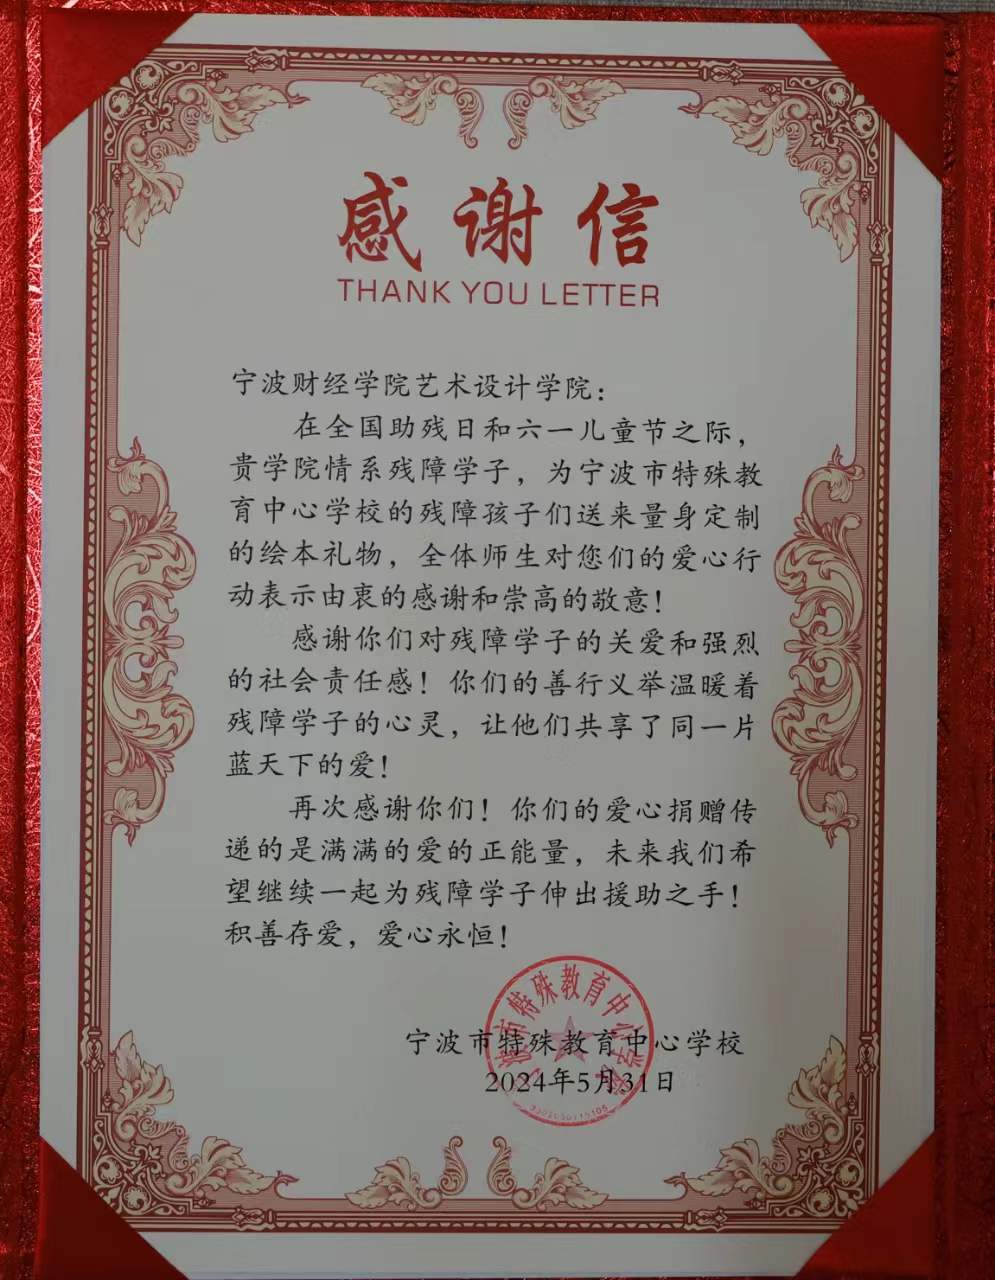 感谢信
THANK YOU LETTER
宁波财经学院艺术设计学院：
在全国助残日和六一儿童节之际，
贵学院情系残障学子，为宁波市特殊教
育中心学校的残障孩子们送来量身定制
的绘本礼物，全体师生对您们的爱心行
动表示由衷的感谢和崇高的敬意！
感谢你们对残障学子的关爱和强烈
的社会责任感！你们的善行义举温暖着
残障学子的心灵，让他们共享了同一片
蓝天下的爱！
再次感谢你们！你们的爱心捐赠传
递的是满满的爱的正能量，未来我们希
望继续一起为残障学子伸出援助之手！
积善存爱，爱心永恒！
宁波市特殊教育中心学校
宁波市特殊教育中心学校
2024年5月31日